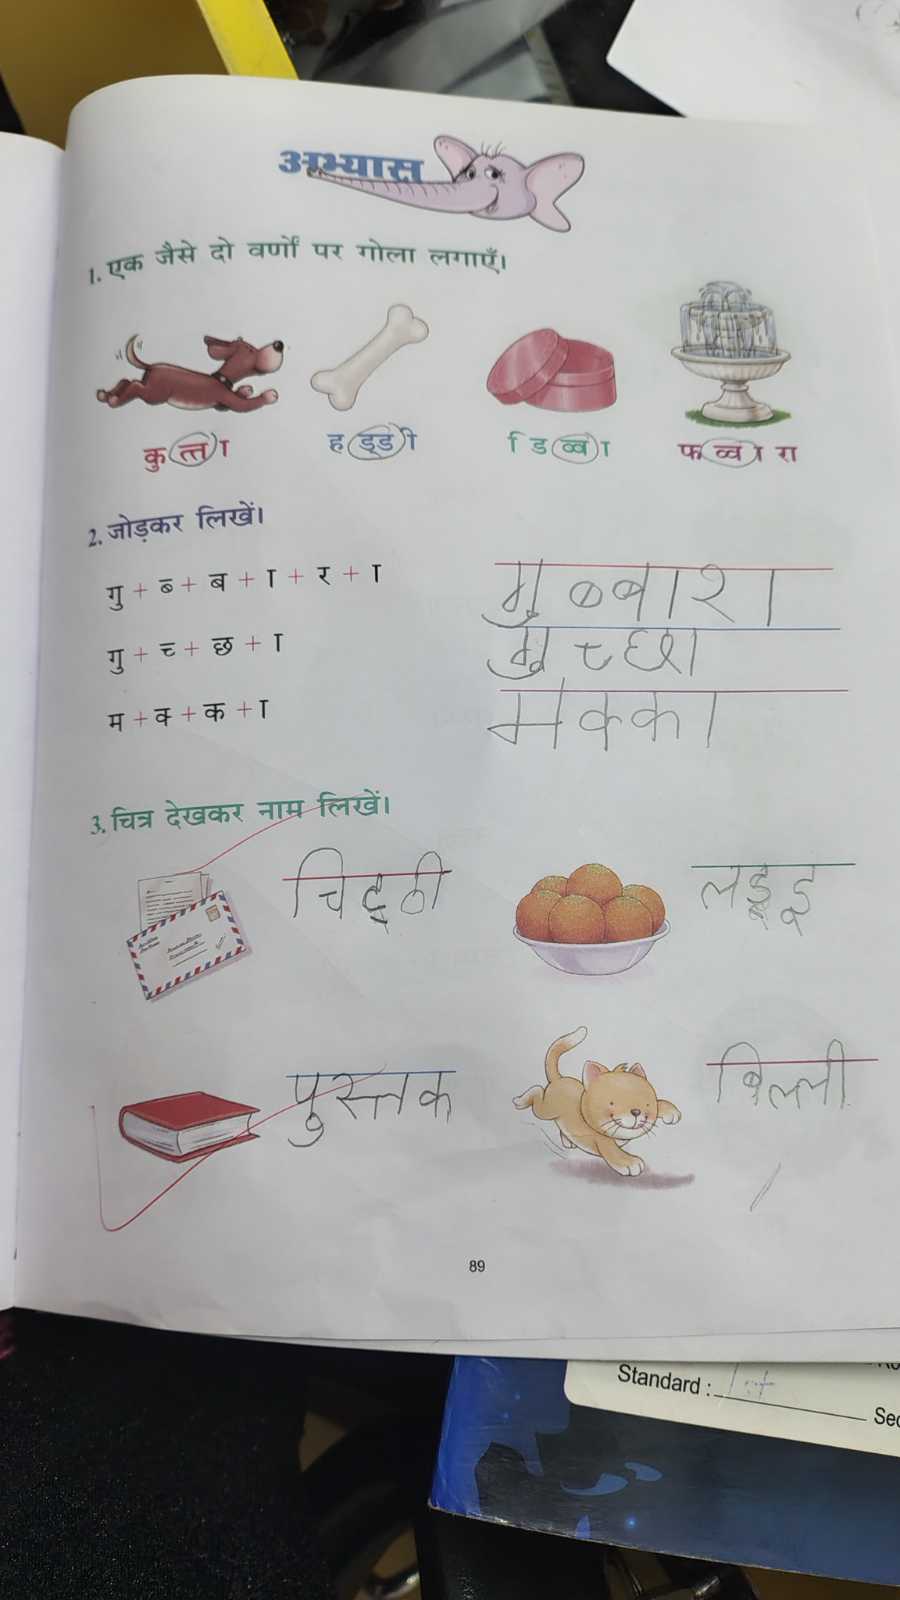 अभ्यास
1. एक जैसे दो वर्णों पर गोला लगाएँ।
कुत्ता हड्डी डिब्बा फव्वारा
2. जोड़कर लिखें।
गु + ब् + ब + ा + र + ा गुब्बारा
गु + च् + छ + ा गुच्छा
म + क् + क + ा मक्का
3. चित्र देखकर नाम लिखें।
चिट्ठी लड्डू
पुस्तक बिल्ली
89
Standard : 1st